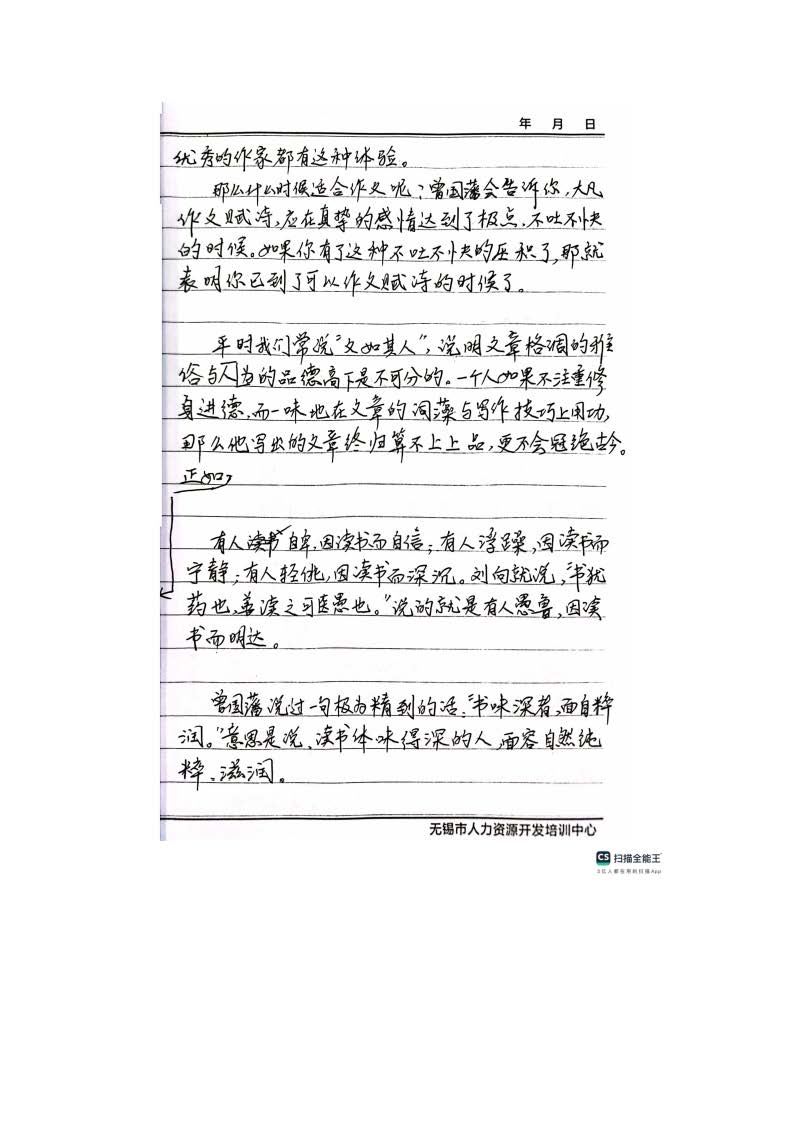 年 月 日
优秀的作家都有这种体验。
那么什么时候适合作文呢？曾国藩会告诉你，大凡
作文赋诗，应在真挚的感情达到了极点，不吐不快
的时候。如果你有了这种不吐不快的压积了，那就
表明你已到了可以作文赋诗的时候了。
平时我们常说“文如其人”，说明文章格调的雅
俗与人为的品德高下是不可分的。一个人如果不注重修
身进德，而一味地在文章的词藻与写作技巧上用功，
那么他写出的文章终归算不上上品，更不会冠绝古今。
正如，
有人读书自卑，因读书而自信；有人浮躁，因读书而
宁静；有人轻佻，因读书而深沉。刘向就说，“书犹
药也，善读之可医愚也。”说的就是有人愚鲁，因读
书而明达。
曾国藩说过一句极为精到的话：“书味深者，面自粹
润。”意思是说，读书体味得深的人，面容自然纯
粹、滋润。
无锡市人力资源开发培训中心
CS 扫描全能王
3亿人都在用的扫描App